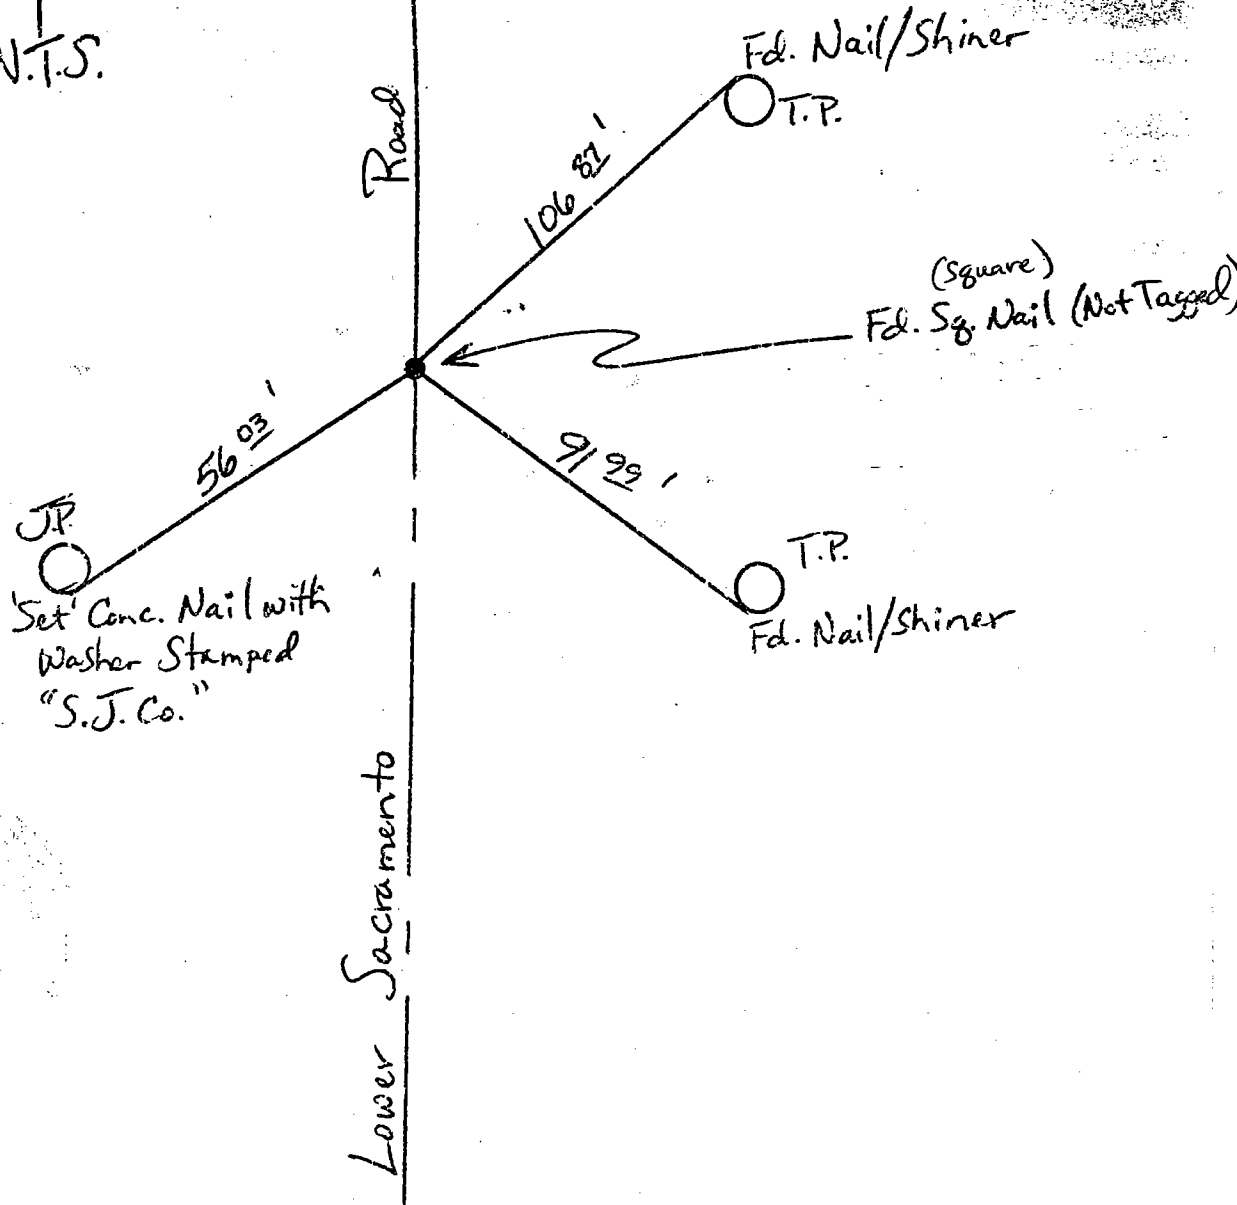 N.T.S.
Fd. Nail/Shiner
T.P.
Road
106 87'
(square)
Fd. Sq. Nail (Not Tagged)
56 03'
91 99'
J.P.
'Set' Conc. Nail with
Washer Stamped
"S.J. Co."
T.P.
Fd. Nail/Shiner
Lower Sacramento